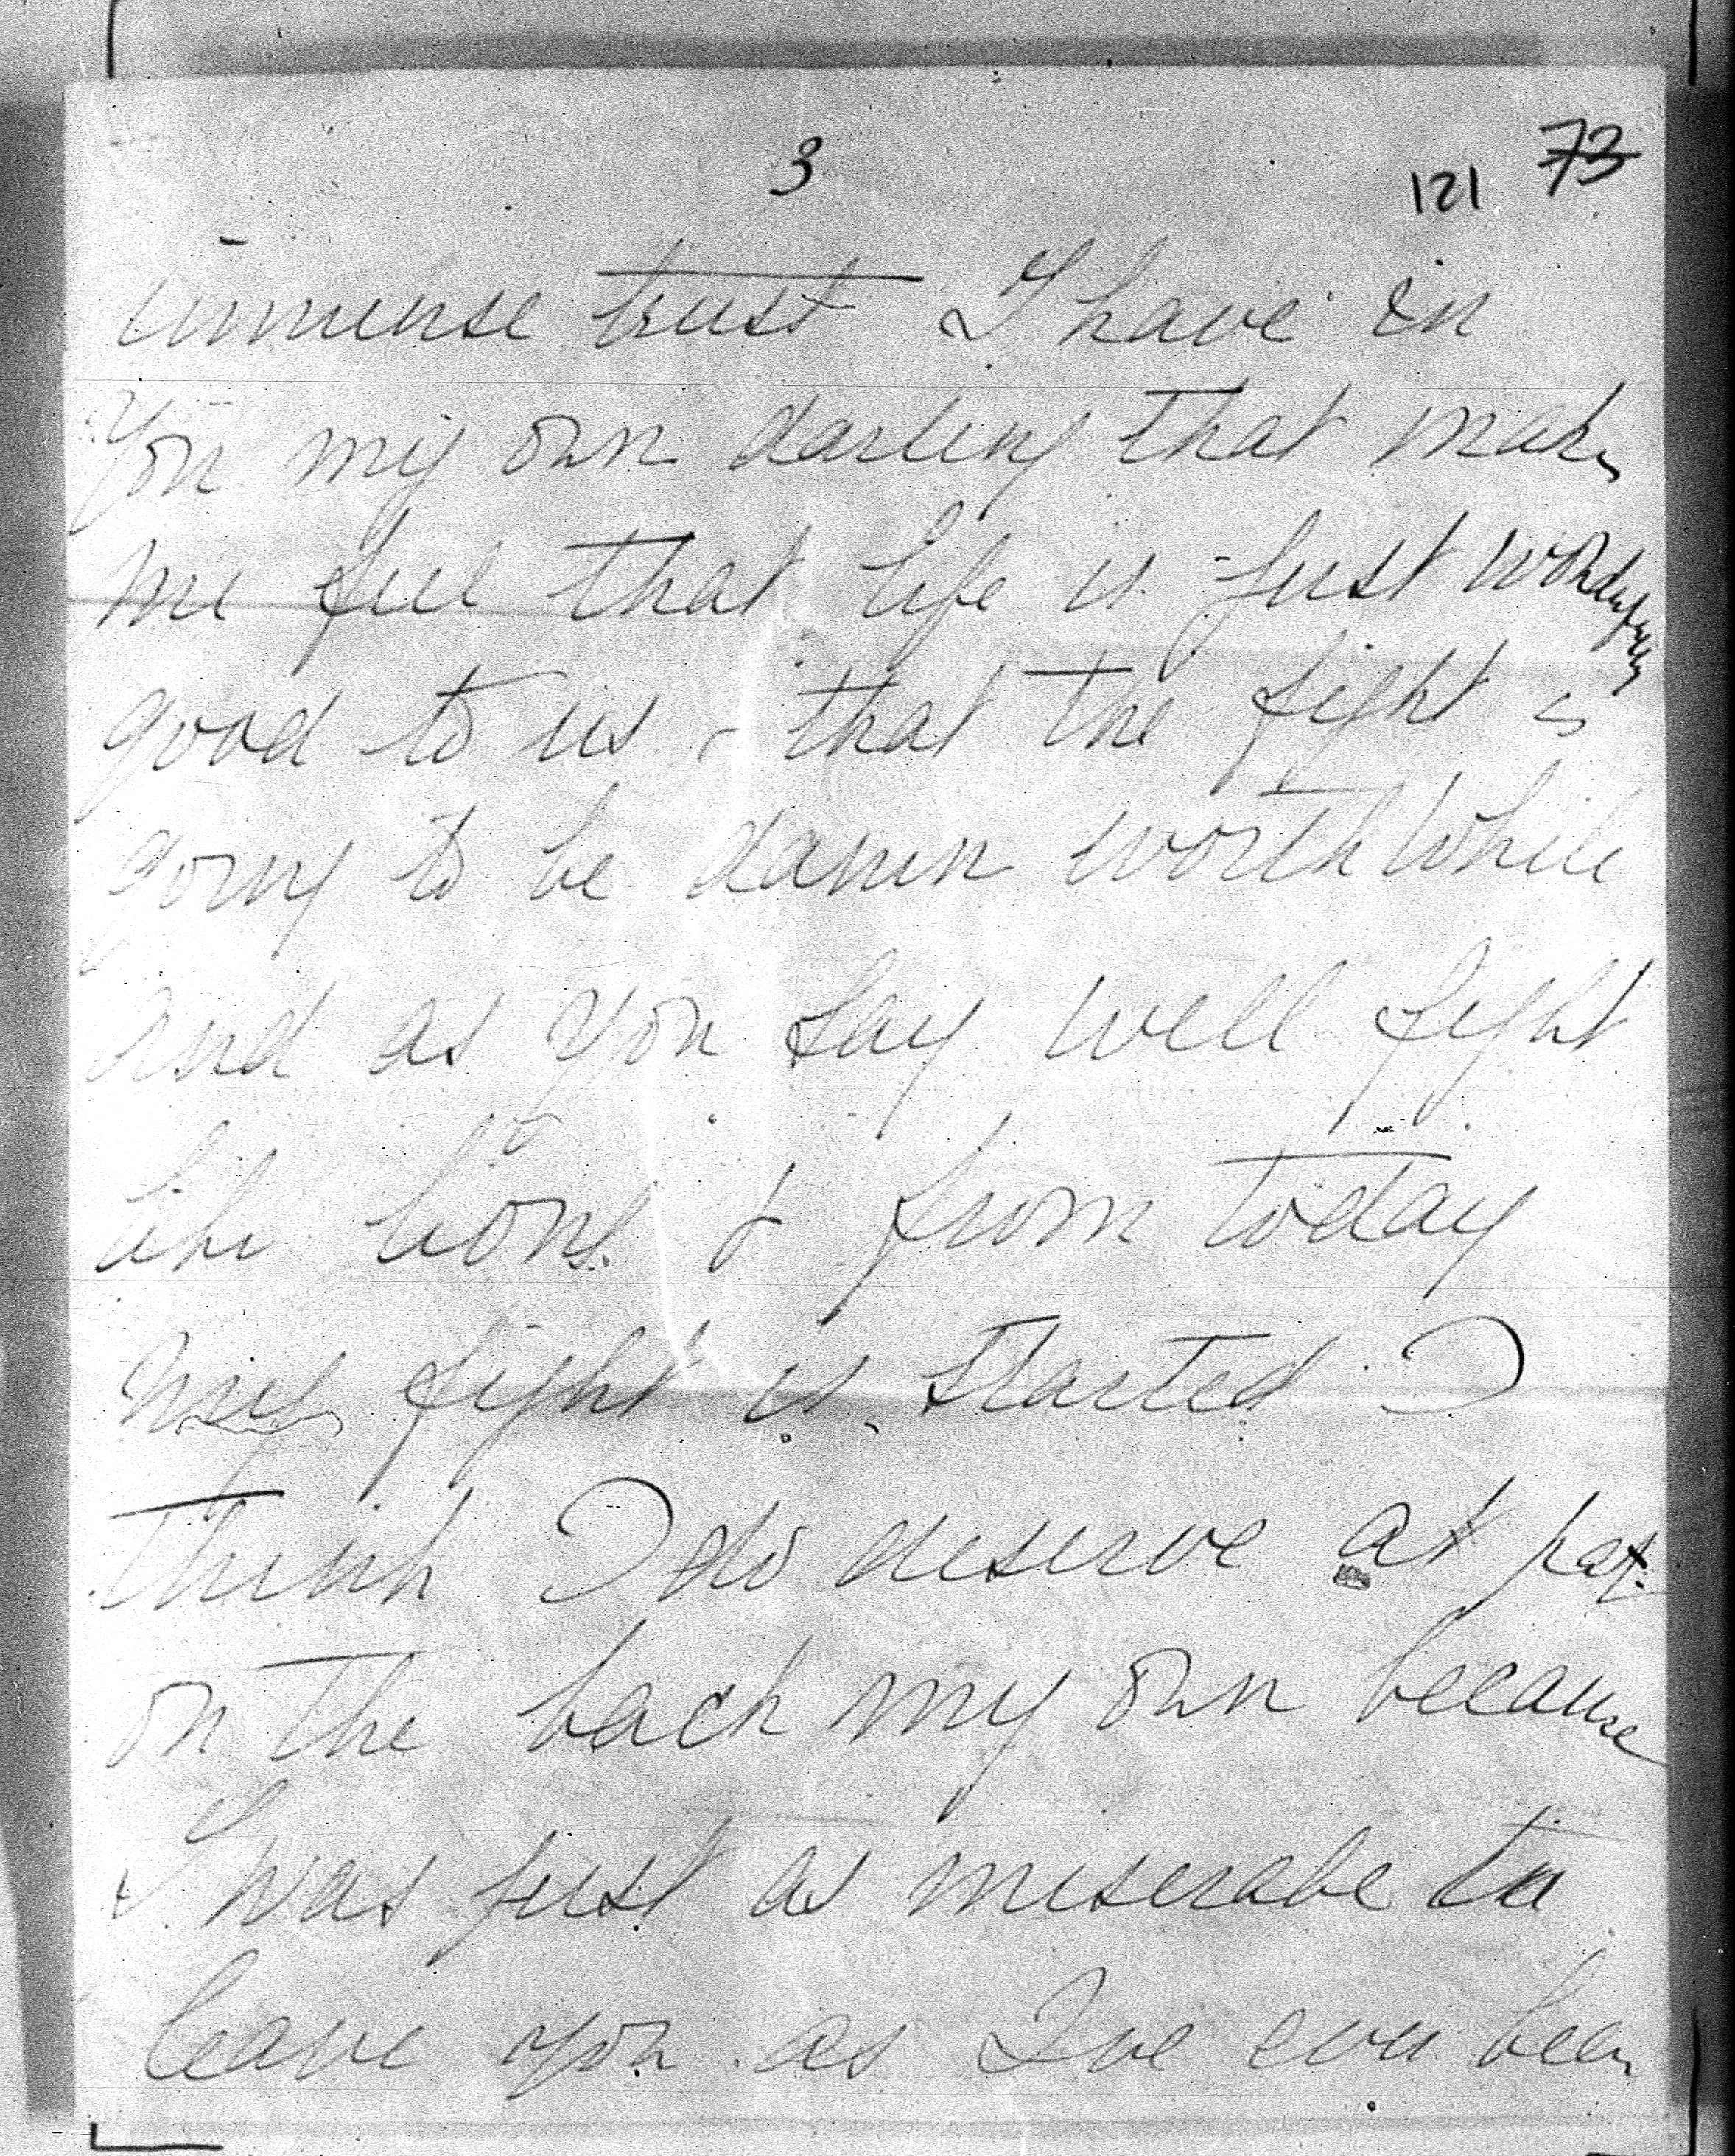 3
121 73
immense trust I have in
You my own darling that makes
me feel that life is just wonderfully
good to us & that the fight is
going to be damn worth while
and as you say well fight
like lions & from today
my fight is started I
think I do deserve at pat
on the back my own because
I was just as miserabe to
leave you as Ive ever been